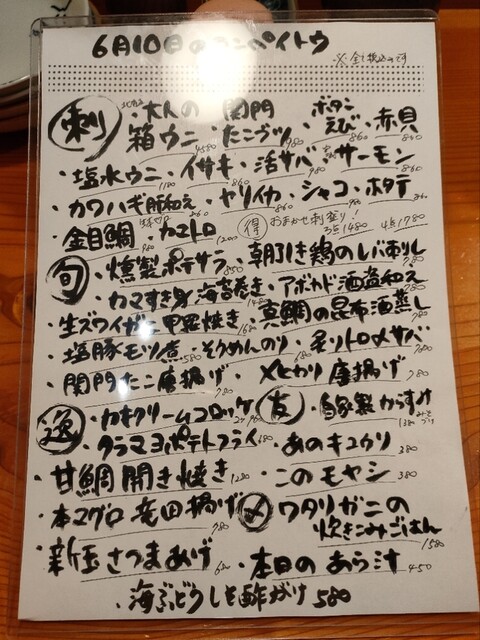 6月10日のコンペイトウ
※全て税込みです
刺 ・大人の箱ウニ 4580 ・関門たこブツ 980 ・ボタンえび 860 ・赤貝 860
・塩水ウニ 1180 ・イサキ 860 ・活サバ 980 ・サーモン 860
・カワハギ肝和え ・ヤリイカ 860 ・シャコ 980 ・ホタテ
・金目鯛 ・カマトロ 1200 得 おまかせ刺盛り! 3点1480 4点1780
旬 ・燻製ポテサラ 850 ・朝引き鶏のレバ刺し 780
・カマすき身海苔巻き ・アボカド酒盗和え 780
・生ズワイガニ甲羅焼き 1680 ・真鯛の昆布酒蒸し 780
・塩豚モツ煮 580 ・そうめんのり 680 ・炙りトロ〆サバ
・関門たこ唐揚げ 780 ・メヒカリ唐揚げ 780
逸 ・カキクリームコロッケ 友 ・自家製からすみ 1380
・タラマヨポテトフライ ・あのキュウリ 380
・甘鯛開き焼き 1280 ・このモヤシ 380
・本マグロ竜田揚げ 780 〆 ・ワタリガニの炊きこみごはん 1580
・新玉さつまあげ ・本日のあら汁 450
・海ぶどうしそ酢がけ 580